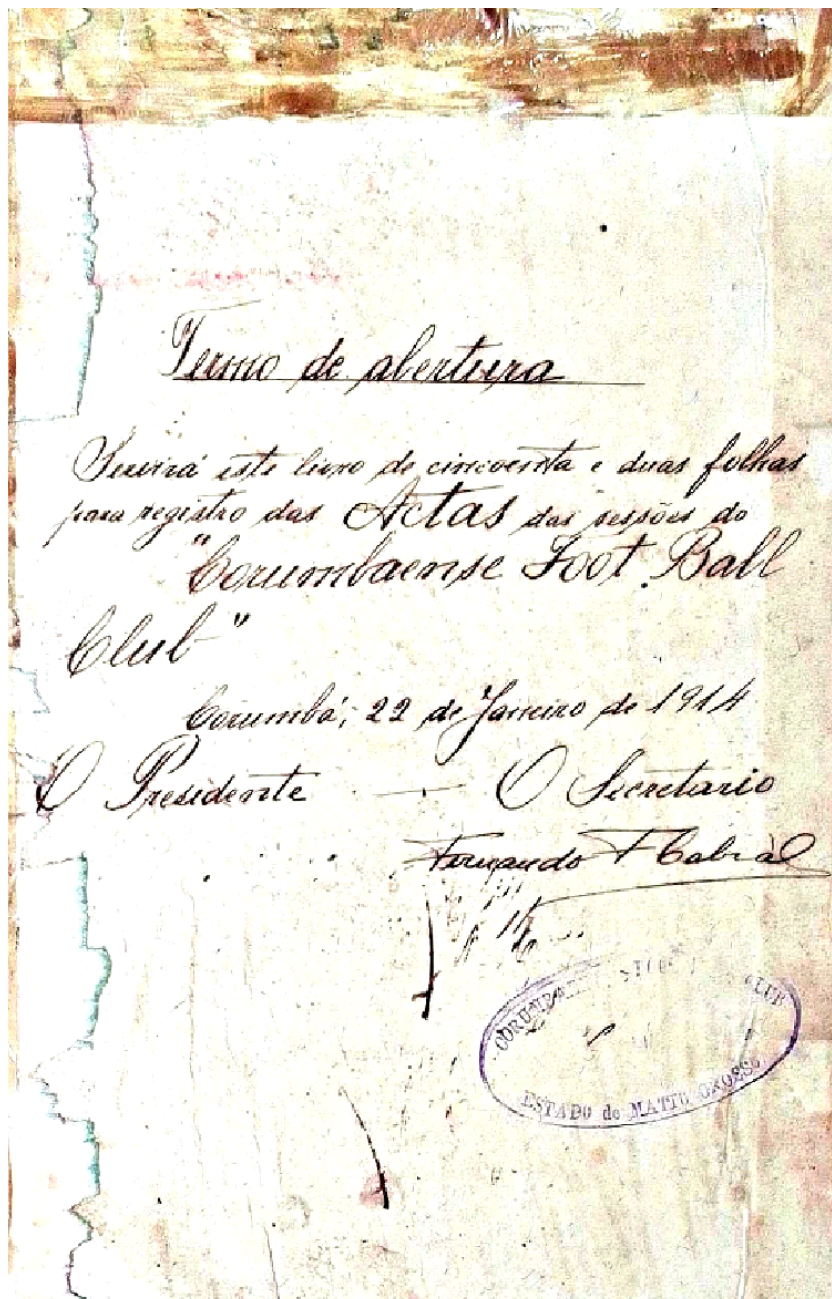 Termo de abertura
Servirá este livro de cincoenta e duas folhas
para registro das Actas das sessões do
"Corumbaense Foot Ball
Club"
Corumbá, 22 de Janeiro de 1914
O Presidente — O Secretario
Fernando F Cabral
CLUB
ESTADO do MATTO GROSSO